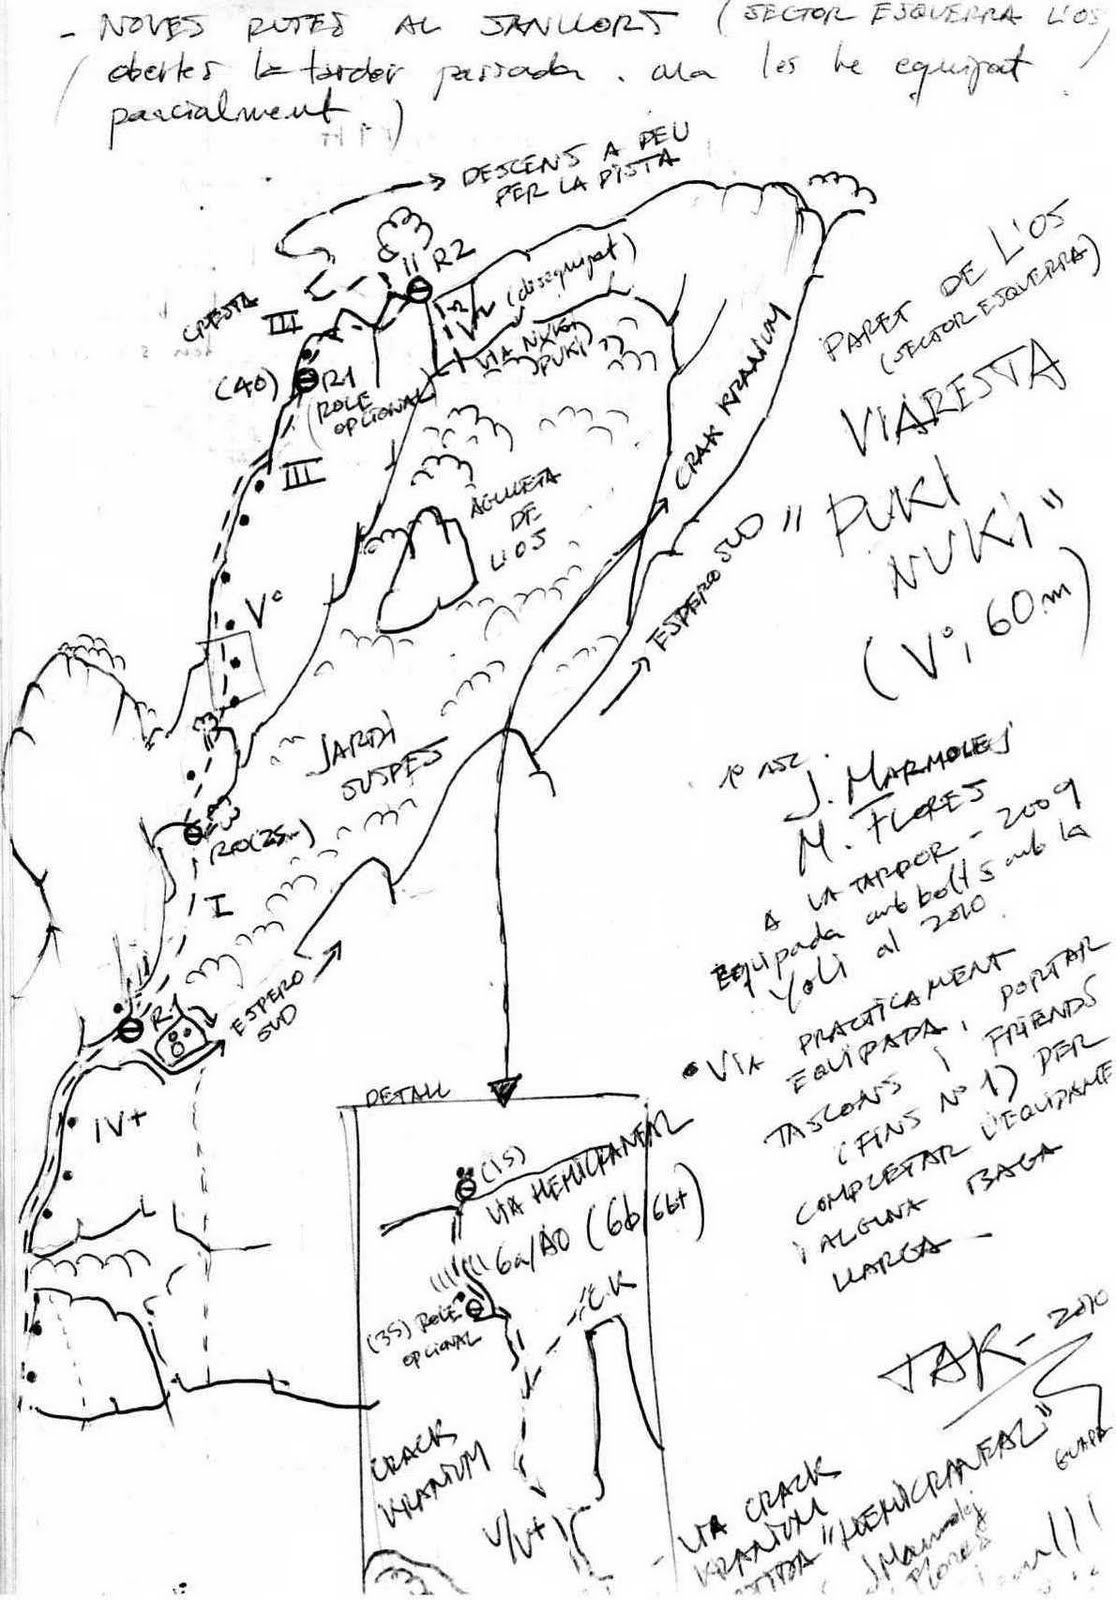 - NOVES RUTES AL SANLLORS (SECTOR ESQUERRA L'OS)
(obertes la tardor passada. ara les he equipat
parcialment)
DESCENS A PEU
PER LA PISTA
R2
CRESTA
III
(desequipat)
VIA NUKI
PUKI
(40)
R1
(ROLE
OPCIONAL)
III
CRAK KRANIUM
PARET DE L'OS
(SECTOR ESQUERRA)
VIARESTA
"PUKI
NUKI"
(Vº, 60m)
AGULLETA
DE
L'OS
Vº
ESPERO SUD
JARDI
SUSPES
J. MARMOLEJ
M. FLORES
A LA TARDOR - 2009
EQUIPADA amb bolts amb la
Yoli al 2010
RO(25m)
I
R1
ESPERO
SUD
• VIA PRACTICAMENT
EQUIPADA, PORTAR
TASCONS I FRIENDS
(FINS Nº 1) PER
COMPLETAR L'EQUIPAME
I ALGUNA BAGA
LLARGA -
IV+
DETALL
(15)
VIA HEMICRANEAL
6a/A0 (6b/6b+)
C.K
(35) ROLE
OPCIONAL
TAK - 2010
CRACK
KRANIUM
V/V+
- VIA CRACK
KRANIUM
"HEMICRANEAL"
Marmolej
Flores